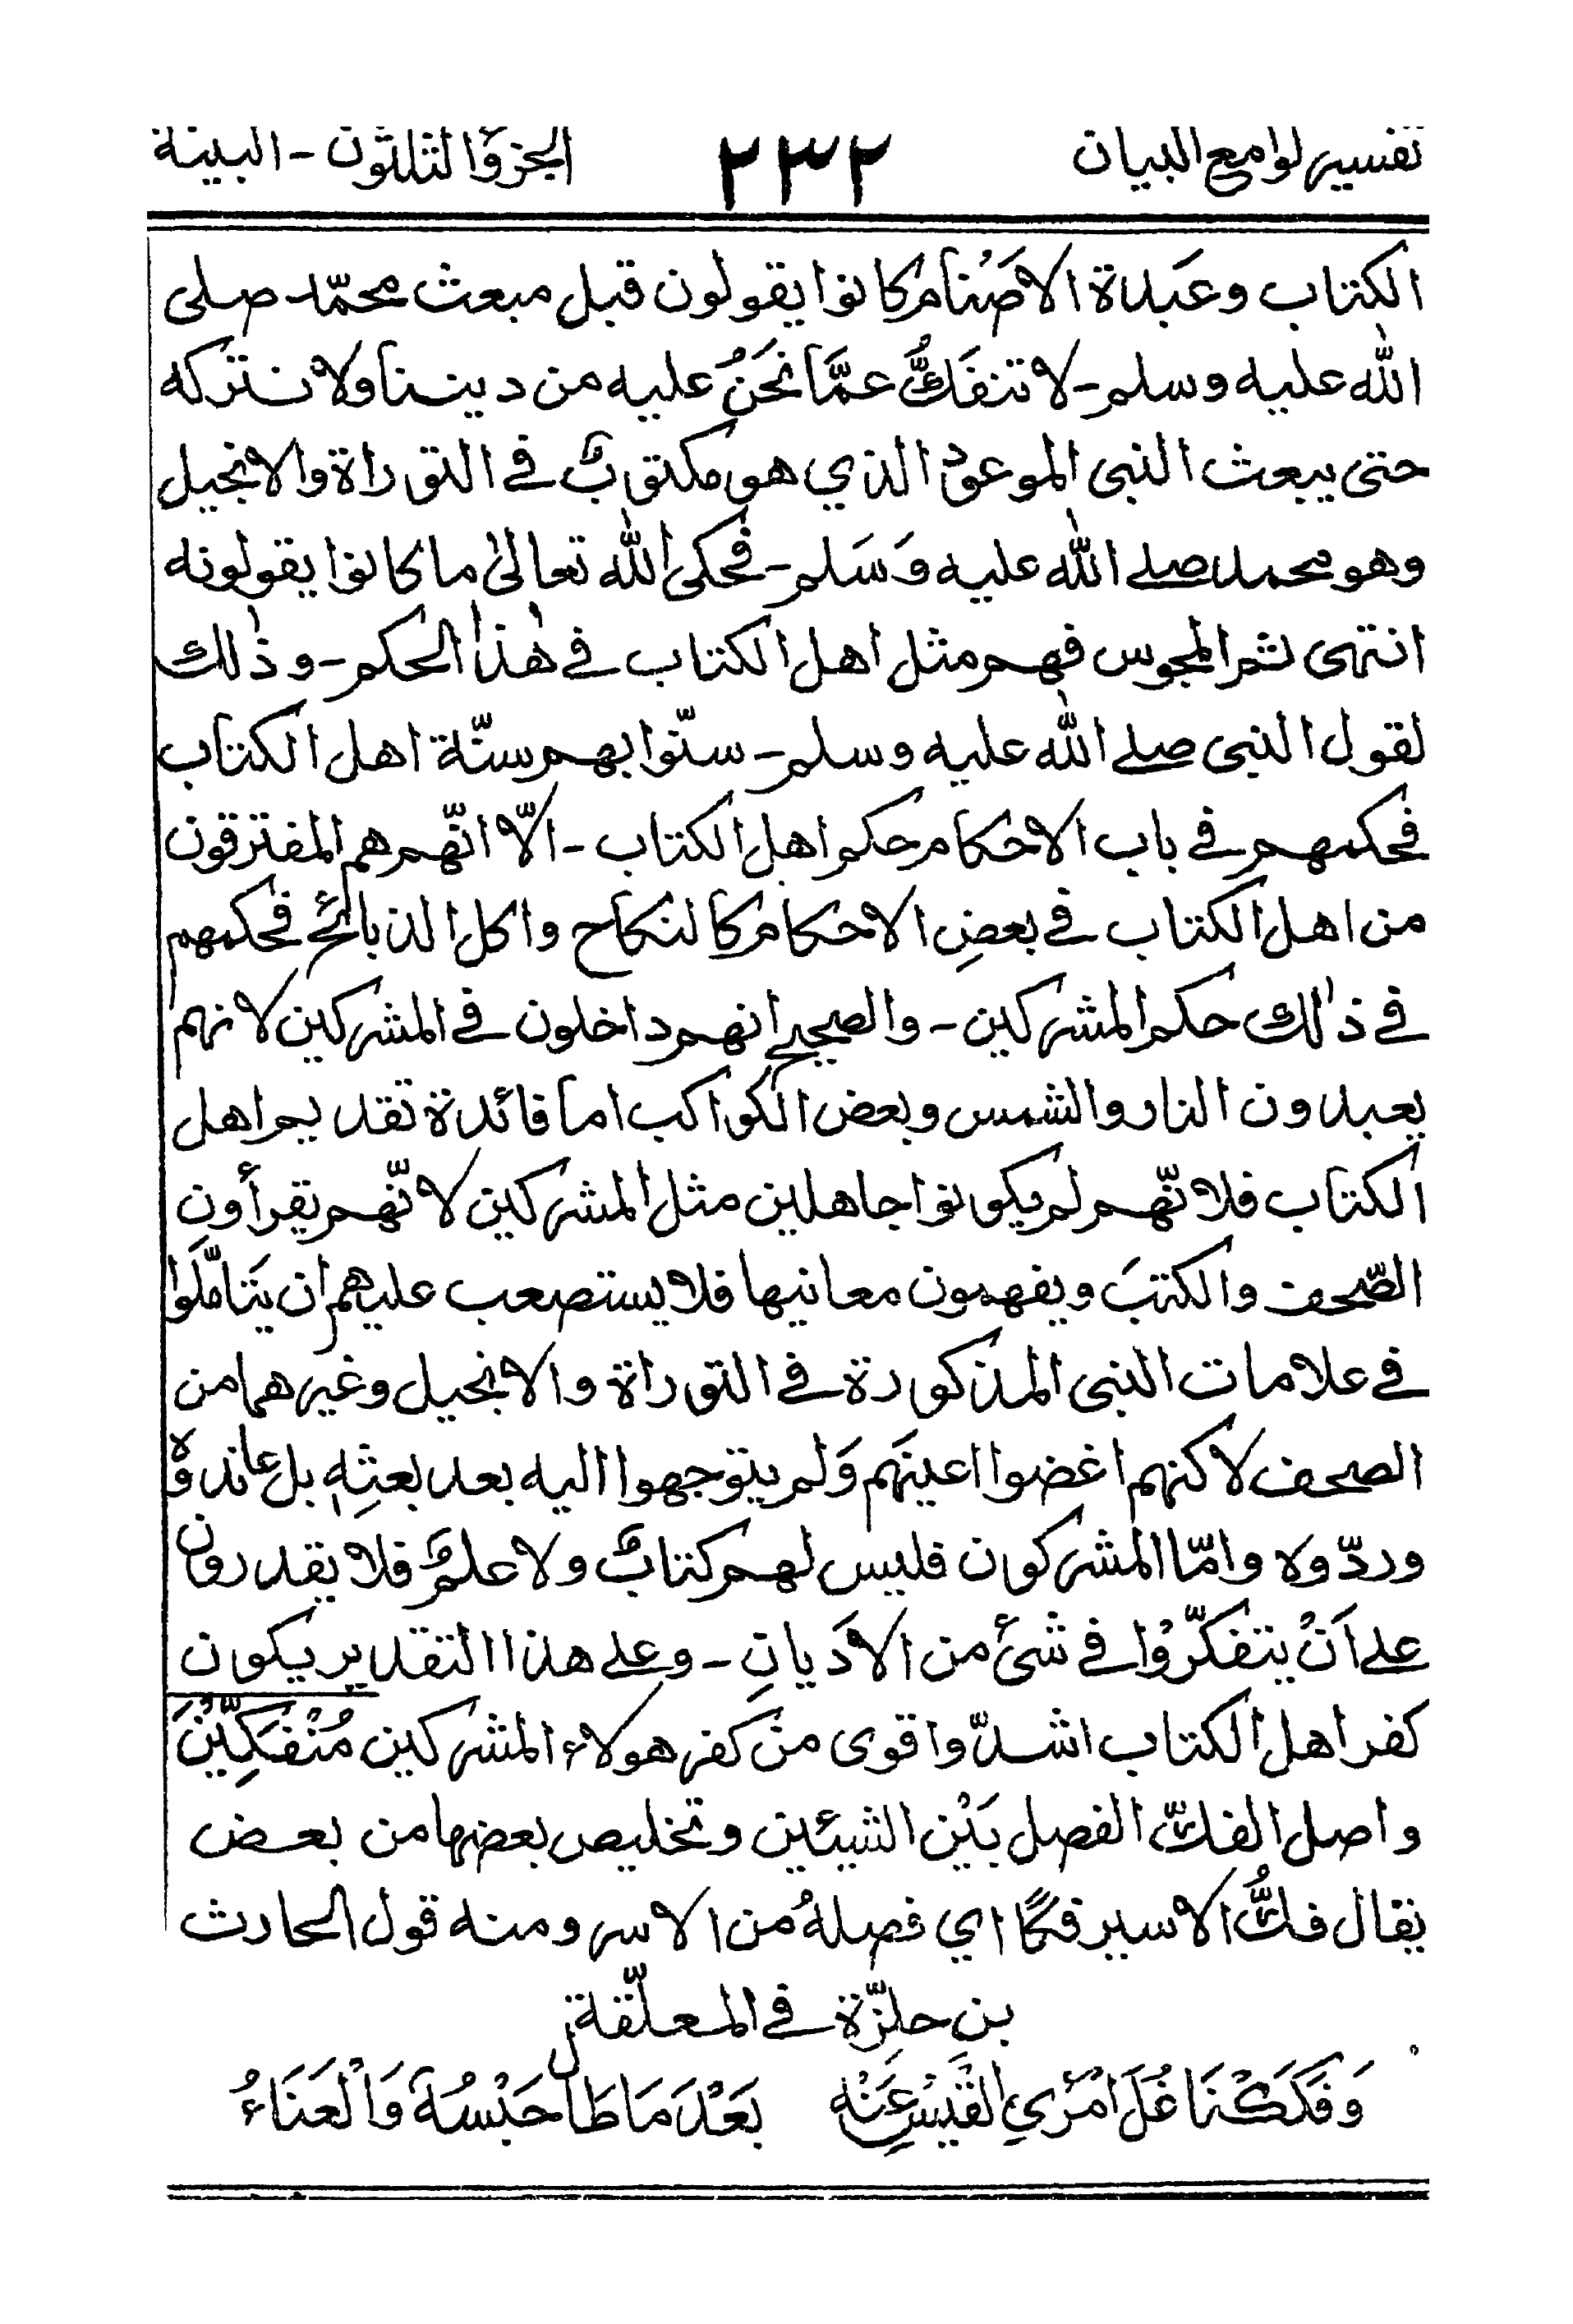 تفسير لوامع البيان ٢٣٢ الجزؤ الثلثون - البينة
الكتاب وعَبدة الاصْنام كانوا يقولون قبل مبعث محمّد صلى
الله عليه وسلم - لا تنفَكُّ عمَّا نحَنُ عليه من ديننا ولا نتركه
حتى يبعث النبى الموعود الذي هو مكتوبٌ في التوراة والانجيل
وهو محمد صلے الله عليه وَسَلم - فحكى الله تعالىٰ ما كانوا يقولونه
انتهى ثم المجوس فهم مثل اهل الكتاب في هٰذا الحكم - وذٰلك
لقول النبى صلے الله عليه وسلم - سنّوا بهم سنّة اهل الكتاب
فحكمهم في باب الاحكام حكم اهل الكتاب - الّا انّهم هم المفترقون
من اهل الكتاب في بعضِ الاحكام كالنكاح واكل الذبائح فحكمهم
في ذٰلك حكم المشركين - والصحيح انهم داخلون في المشركين لانهم
يعبدون النار والشمس وبعض الكواكب اما فائدة تقديم اهل
الكتاب فلانّهم لم يكونوا جاهلين مثل المشركين لانّهم يقرأون
الصّحف والكتبَ ويفهمون معانيها فلا يستصعب عليهم ان يَتاملَّوا
في علامات النبى المذكورة في التوراة والانجيل وغيرهما من
الصحف لاكنهم اغضوا اعينَهم وَلم يتوجهوا اليه بعد بعثِهٖ بل عاندوه
وردّوه وامّا المشركون فليس لهم كتابٌ ولا علمٌ فلا يقدرون
علے اَنْ يتفكّرُوْا في شئ من الادَيانِ - وعلے هذا التقدير يكون
كفر اهل الكتاب اشدّ واقوى من كفر هولاء المشركين مُنْفَكِّيْنَ
واصل الفكّ الفصل بَيْن الشيئين وتخليص بعضها من بعض
يقال فكُّ الاسير فكًا اي فصلهُ من الاسر ومنه قول الحارث
بن حلِزّة في المعلّقة
وَفَكَكْنَا غُلَ امْرَيِ القَيْسِ عَنْهِ بَعْدَ مَا طَالَ حَبْسُهَ وَالْعَنَاءُ